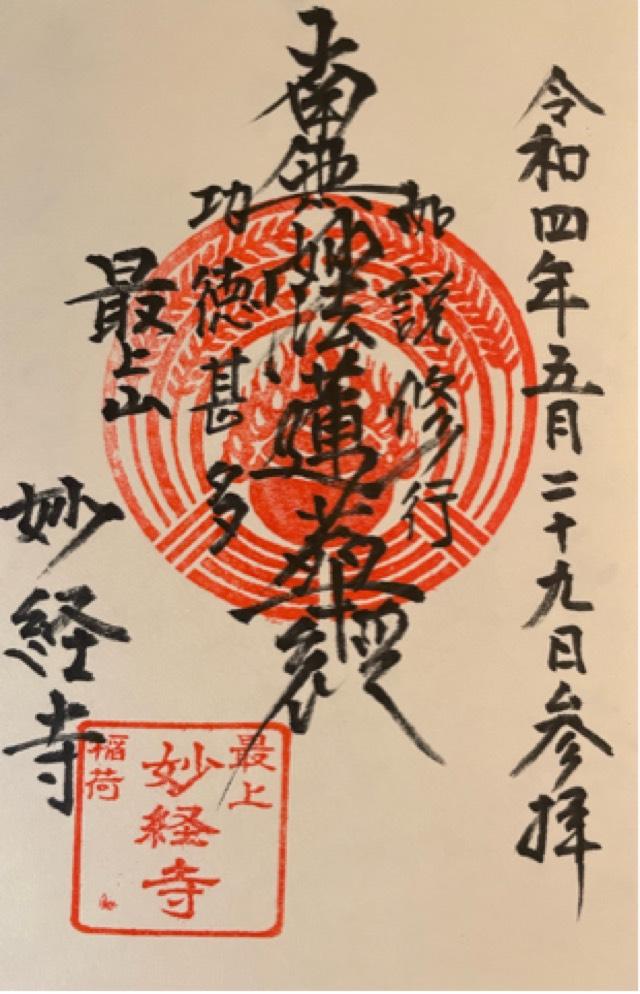 令和四年五月二十九日参拝
如説修行
南無妙法蓮華経
功徳甚多
最上山
妙経寺
最上
妙経寺
稲荷